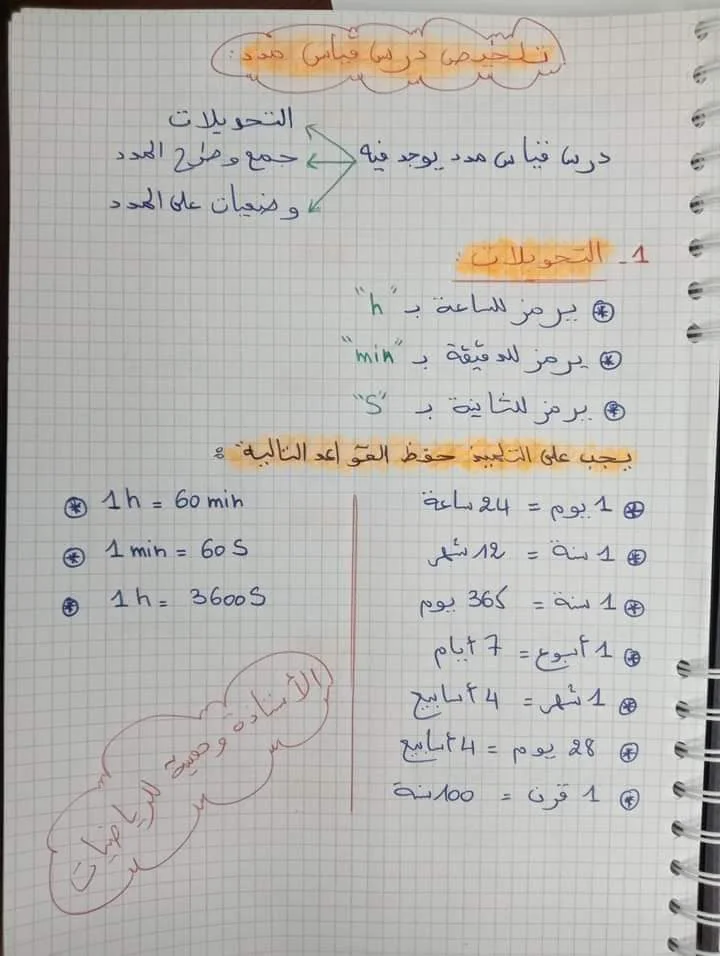 تلخيص درس قياس مدد:
درس قياس مدد يوجد فيه
التحويلات
جمع وطرح المدد
وضعيات على المدد
1- التحويلات:
يرمز للساعة بـ "h"
يرمز للدقيقة بـ "min"
يرمز للثانية بـ "S"
يجب على التلميذ حفظ القواعد التالية:
1 يوم = 24 ساعة
1 سنة = 12 شهر
1 سنة = 365 يوم
1 أسبوع = 7 أيام
1 شهر = 4 أسابيع
28 يوم = 4 أسابيع
1 قرن = 100 سنة
1h = 60 min
1 min = 60 S
1h = 3600 S
الأستاذة وحمية للرياضيات